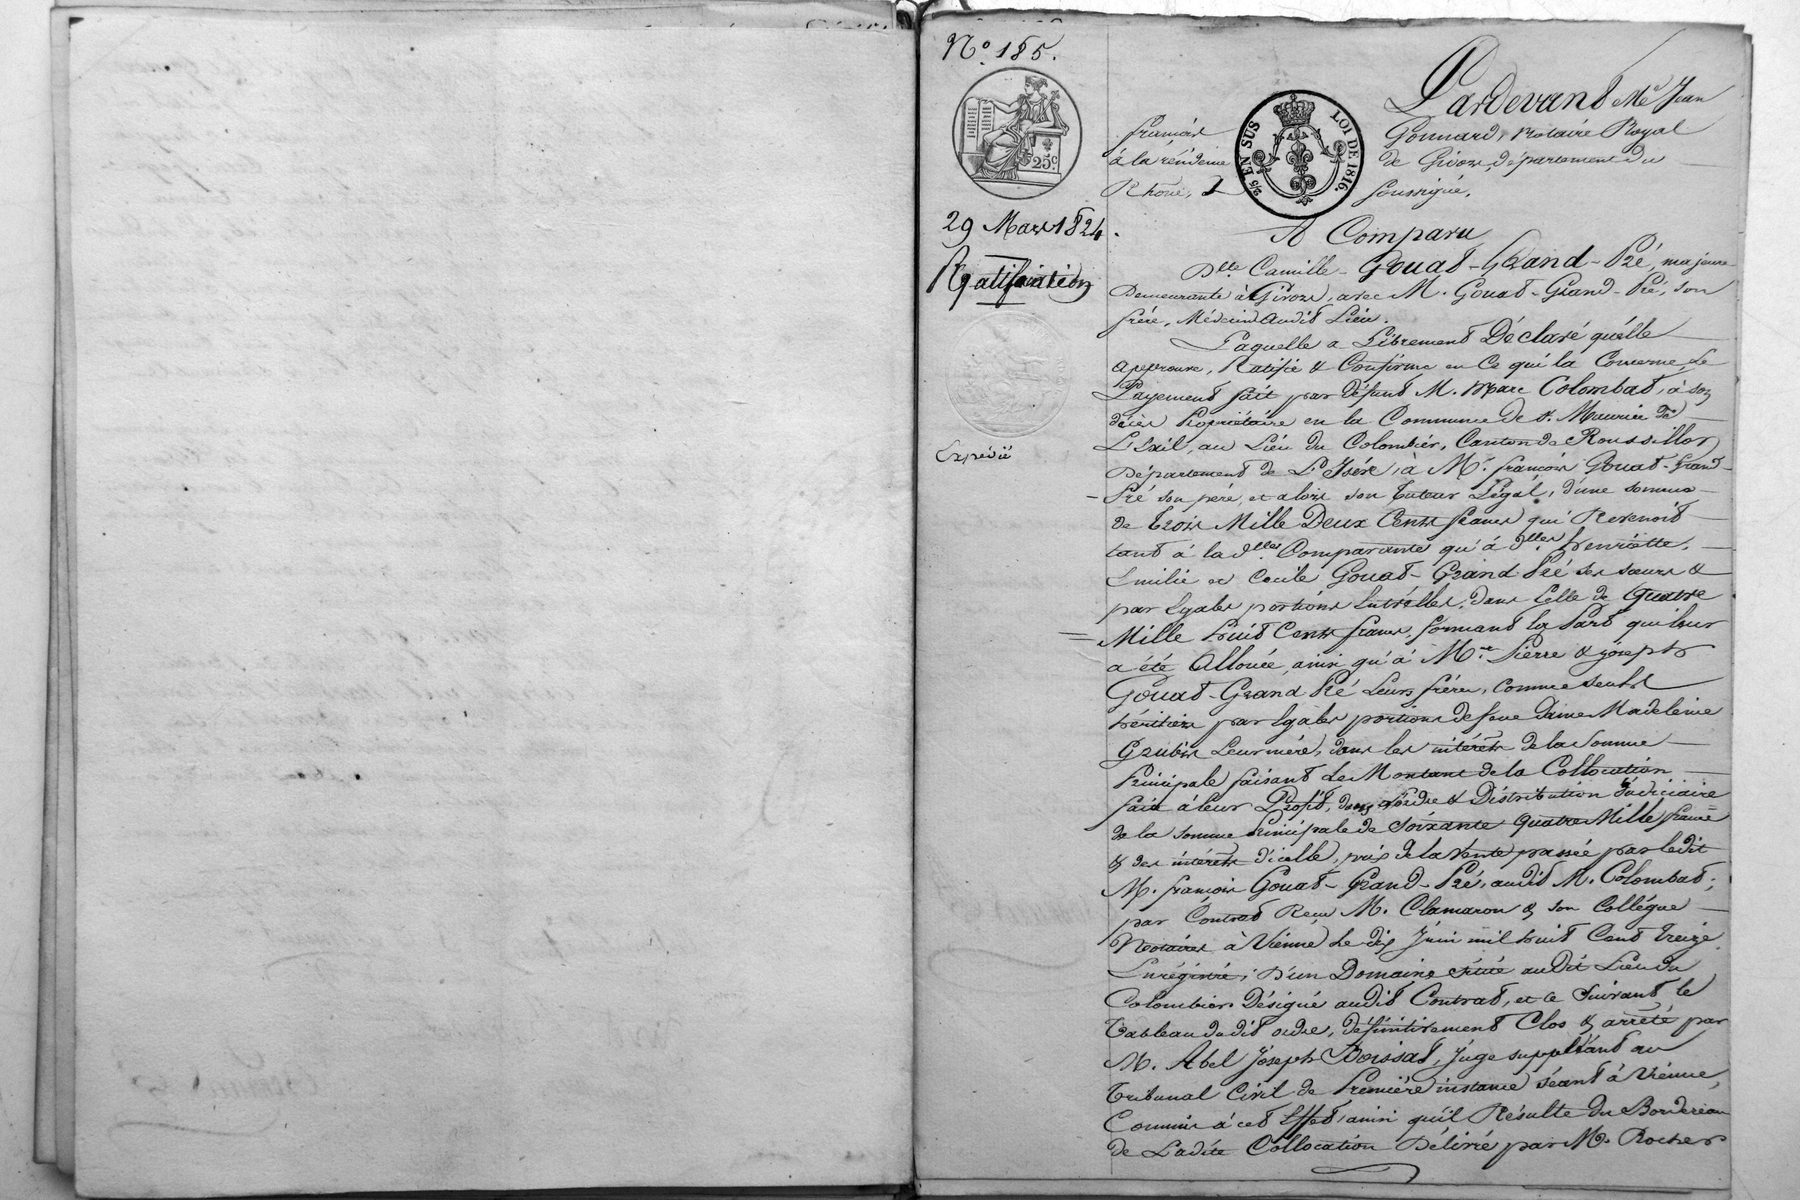 N.° 185.
25.c
29 Mars 1824.
Ratification
Expédié
2/5 EN SUS LOI DE 1816.
Pardevant Me Jean
françois Gonnard, Notaire Royal
à la résidence de Givors, département du
Rhône, soussigné.
A Comparu
Dlle Camille Gouat-Grand-Pré, majeure
Demeurante à Givors, avec M. Gouat-Grand-Pré, son
frère, Médecin audit Lieu.
Laquelle a Librement Déclaré qu'elle
approuve, Ratifie & Confirme en Ce qui la Concerne, Le
Payement fait par défunt M. Marc Colombat, à son
décès Propriétaire en la Commune de St. Maurice de
L'Exil, au Lieu du Colombier, Canton de Roussillon
Département de L'Isère, à Mr. françois Gouat-Grand-
-Pré son père, et alors son Tuteur Légal, d'une somme
de Trois Mille Deux Cents francs qui Revenoit
tant à la dlle Comparante qu'à dlles henriette,
Emilie et Cécile Gouat-Grand Pré ses sœurs &
par Egales portions Entr'elles, dans Celle de Quatre
Mille huit Cents francs, formant la Part qui leur
a été Allouée, ainsi qu'à Mrs Pierre & joseph
Gouat-Grand Pré Leurs frères, comme seuls
héritiers par Egales portions de feue Dame Madeleine
Grubis Leur mère, dans les intérêts de la somme
Principale faisant Le Montant de la Collocation
faite à leur Profit, dans l'Ordre & Distribution judiciaire
de la somme Principale de Soixante Quatre Mille francs
& des intérêts d'icelle, prix de la Vente passée par ledit
M. françois Gouat-Grand-Pré, audit M. Colombat;
par Contrat Reçu M. Clamaron & son Collègue
Notaires à Vienne Le dix Juin mil huit Cent treize
Enrégistré; D'un Domaine situé audit Lieu du
Colombier Désigné audit Contrat, et ce suivant le
Tableau dudit ordre, définitivement Clos & arrêté par
M. Abel Joseph Boissat, Juge suppléant au
Tribunal Civil de Première instance séant à Vienne,
Commis à cet Effet, ainsi qu'il Résulte du Bordereau
de Ladite Collocation Délivré par M. Rocher